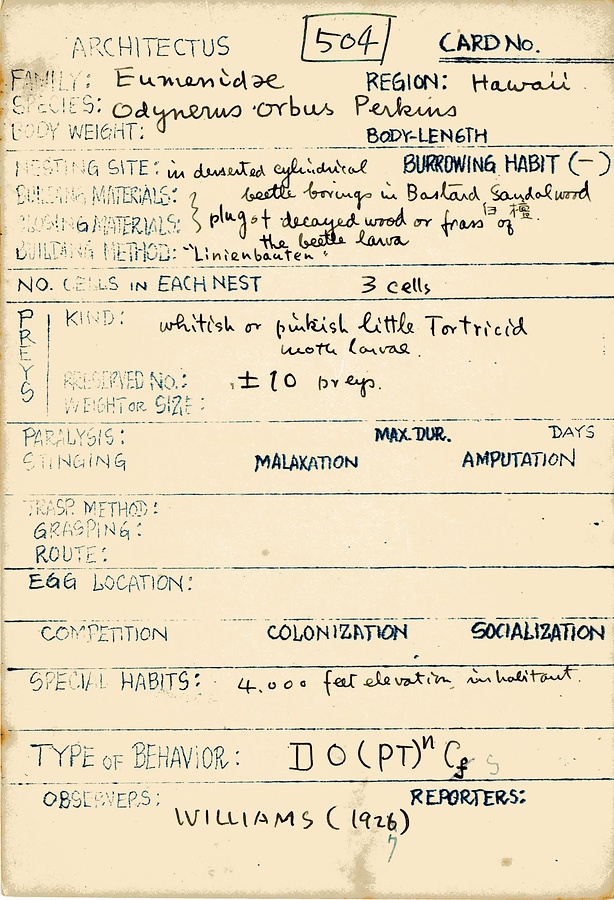 ARCHITECTUS 504 CARD NO.
FAMILY: Eumenidae REGION: Hawaii
SPECIES: Odynerus orbus Perkins
BODY WEIGHT: BODY-LENGTH
NESTING SITE: in desserted cylindrical BURROWING HABIT (—)
BUILDING MATERIALS: beetle borings in Bastard Sandalwood
白檀
CLOSING MATERIALS: plug of decayed wood or frass of
the beetle larva
BUILDING METHOD: "Linienbauten"
NO. CELLS IN EACH NEST 3 cells
PREYS
KIND: whitish or pinkish little Tortricid
moth larvae.
RESERVED NO.: ±10 preys.
WEIGHT OR SIZE:
PARALYSIS: MAX. DUR. DAYS
STINGING MALAXATION AMPUTATION
TRASP. METHOD:
GRASPING:
ROUTE:
EGG LOCATION:
COMPETITION COLONIZATION SOCIALIZATION
SPECIAL HABITS: 4.000 feet elevation inhabitant.
TYPE OF BEHAVIOR: D O (PT)ⁿ Cf s
OBSERVERS: REPORTERS:
WILLIAMS (1926)
7